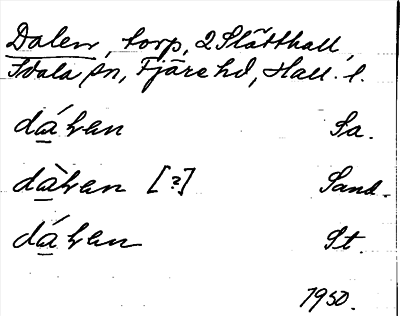 Dalen, torp, 2 Slätthall,
Idala sn, Fjäre hd, Hall. l.
dá̱ƚen Sa.
dà̱ƚen [?] Sand.
dá̱ƚen St.
1930.